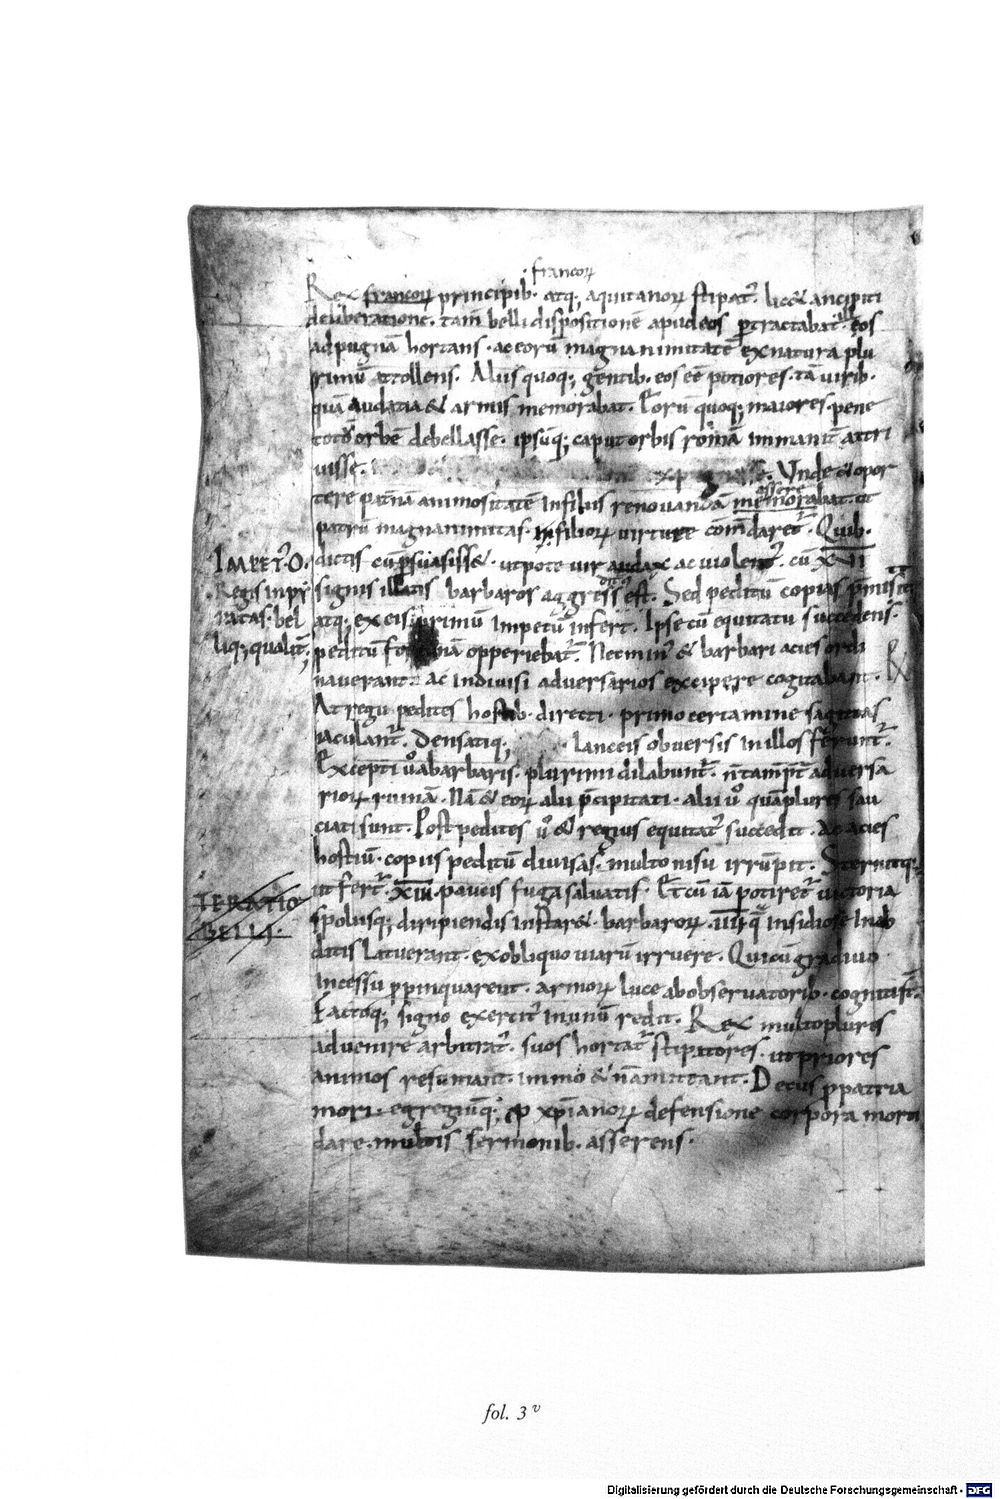 ·francoꝝ
Rex francoꝝ principib· atq; aquitanoꝝ stipat᷑· lic& ancipiti
deliberatione· tam̄ belli dispositionē apud eos ꝑtractabat· eos
ad pugnā hortans· ac eorū magnanimitatē ex natura plu
rimū attollens· Aliis quoq; gentib· eos eē potiores· tā virib·
quā audatia & armis memorabat· Eorū quoq; maiores· pene
totū orbē debellasse· ipsūq; caput orbis romā immanit̄ attri
uisse·
Unde & opor
assere
tere pat̄nā animositatē in filiis renouandā memorabat· ut
patrū magnanimitas· in filioꝝ uirtute com̄daret᷑· Quib·
dictis cū ꝑsuasiss&· utpote uir audax ac uiolent᷑· cū XVII
signis illatis barbaros aggressus est· Sed peditū copias p̄misit
atq; ex eis primū impetū infert· Ipse cū equitatu succedens·
peditū fortunā opperiebat᷑· Necmin᷑ & barbari acies ordi
nauerant· ac indiuisi aduersarios excipere cogitabant·
At regii pedites hostib· directi· primo certamine sagittas
iaculant᷑· Densatiq; lanceis obuersis in illos ferunt᷑·
Excepti u̾ a barbaris· plurimi dilabunt᷑· n̄ tam̄ p̄t aduersa
rioꝝ ruinā· Nā & eoꝝ alii p̄cipitati· alii u̾ quāplures sau
ciati sunt· Post pedites u̾ & regius equitat᷑ succedit· Ac acies
hostiū· copiis peditū diuisas· multo nisu irrūpit· Sternitq;
ut fert᷑· XIII· paucis fuga saluatis· Et cū iā potiret᷑ uictoria
spoliisq; diripiendis instar& barbaroꝝ· IIII· q̄ insidiose in ab
ditis latuerant· ex obliquo uiarū irruere· Qui cū gradiuo
incessu ꝓpinquarent· armoꝝ luce ab obseruatorib· cogniti st̄·
Factoq; signo exercit᷑ in unū redit· Rex multo plures
aduenire arbitrat᷑· suos hortat᷑ stipatores· ut priores
animos resumant· immo & n̄ amittant· Decus ꝓ patria
mori· egregiūq; ꝓ xp̄ianoꝝ defensione corpora morti
dare· multis sermonib· asserens·
IMPET᷑O·
Regis in py
ratas· bel
liq; qualit̄;
ITERATIO
BELLI·
fol. 3ᵛ
Digitalisierung gefördert durch die Deutsche Forschungsgemeinschaft - DFG